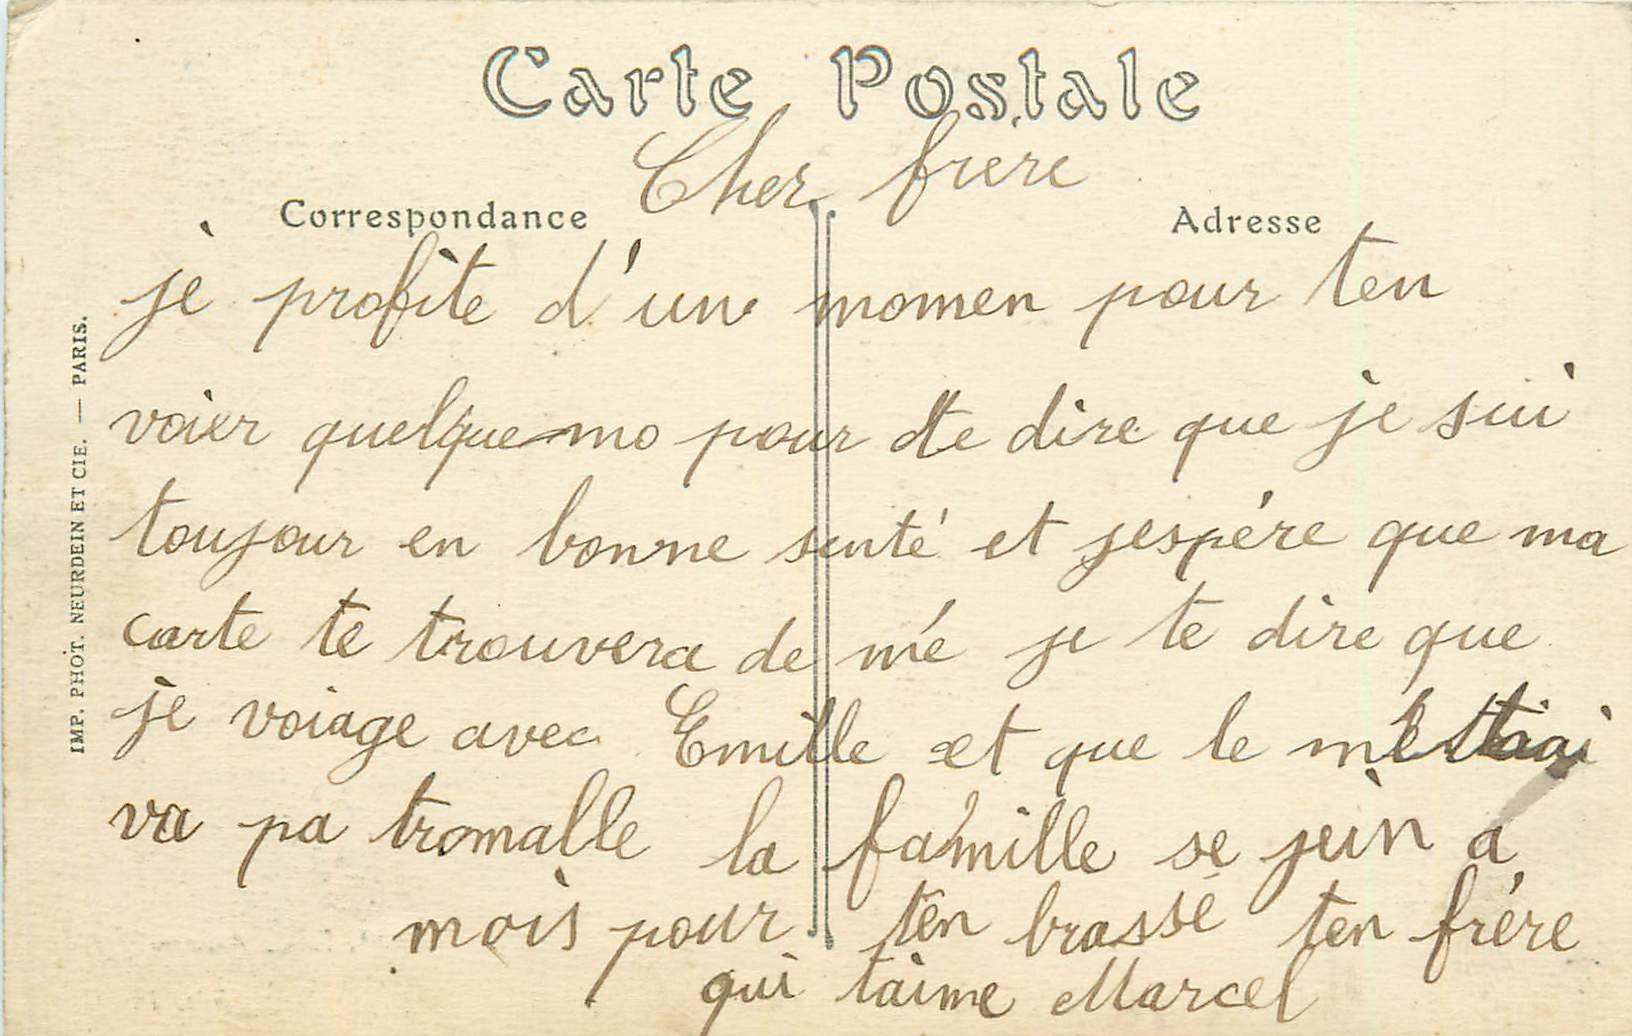 Carte Postale
Cher frere
Correspondance
Adresse
je profite d'un momen pour ten
voier quelque mo pour te dire que je sui
toujour en bonne senté et jespére que ma
carte te trouvera de mé je te dire que
je voiage avec Emille et que le
va pa tromalle la famille se juin a
mois pour ten brassé ten frére
qui taime Marcel
IMP. PHOT. NEURDEIN ET CIE. — PARIS.